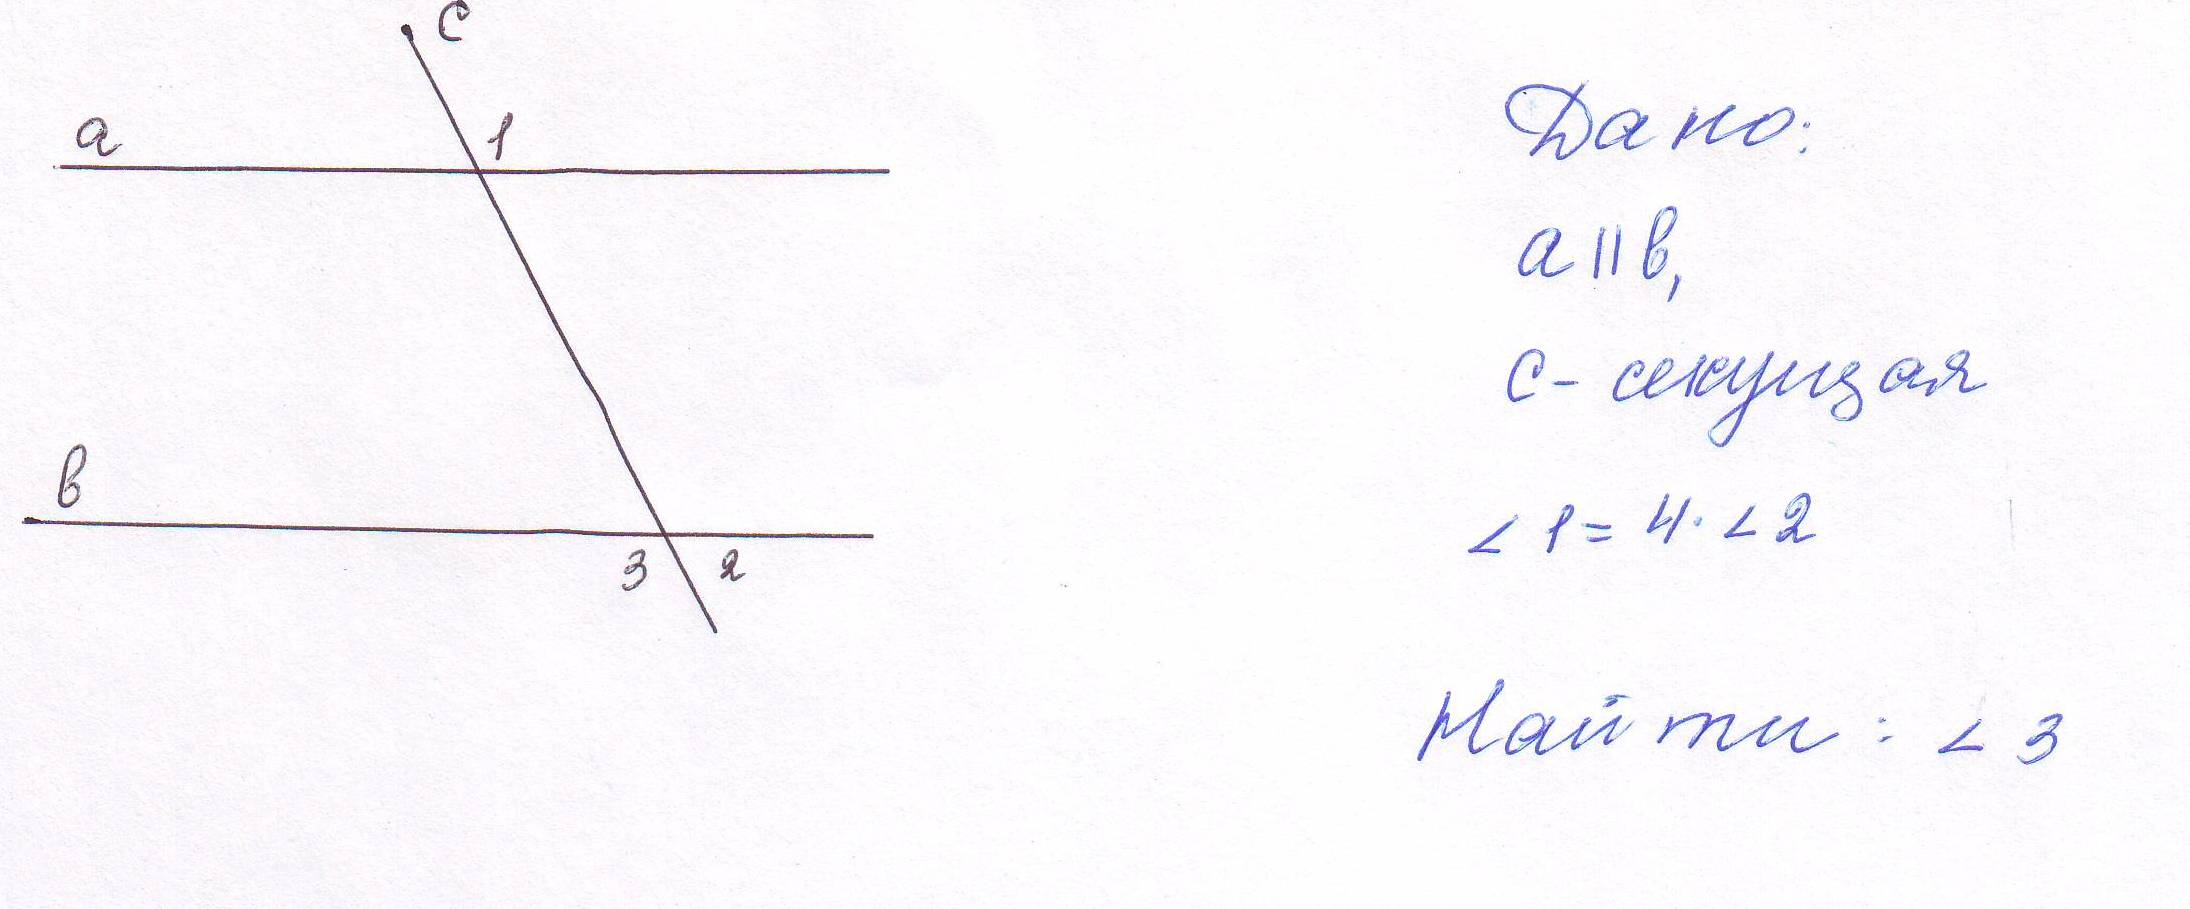 c
a
1
в
3 2
Дано:
a || в,
c - секущая
∠ 1 = 4 · ∠ 2
Найти : ∠ 3